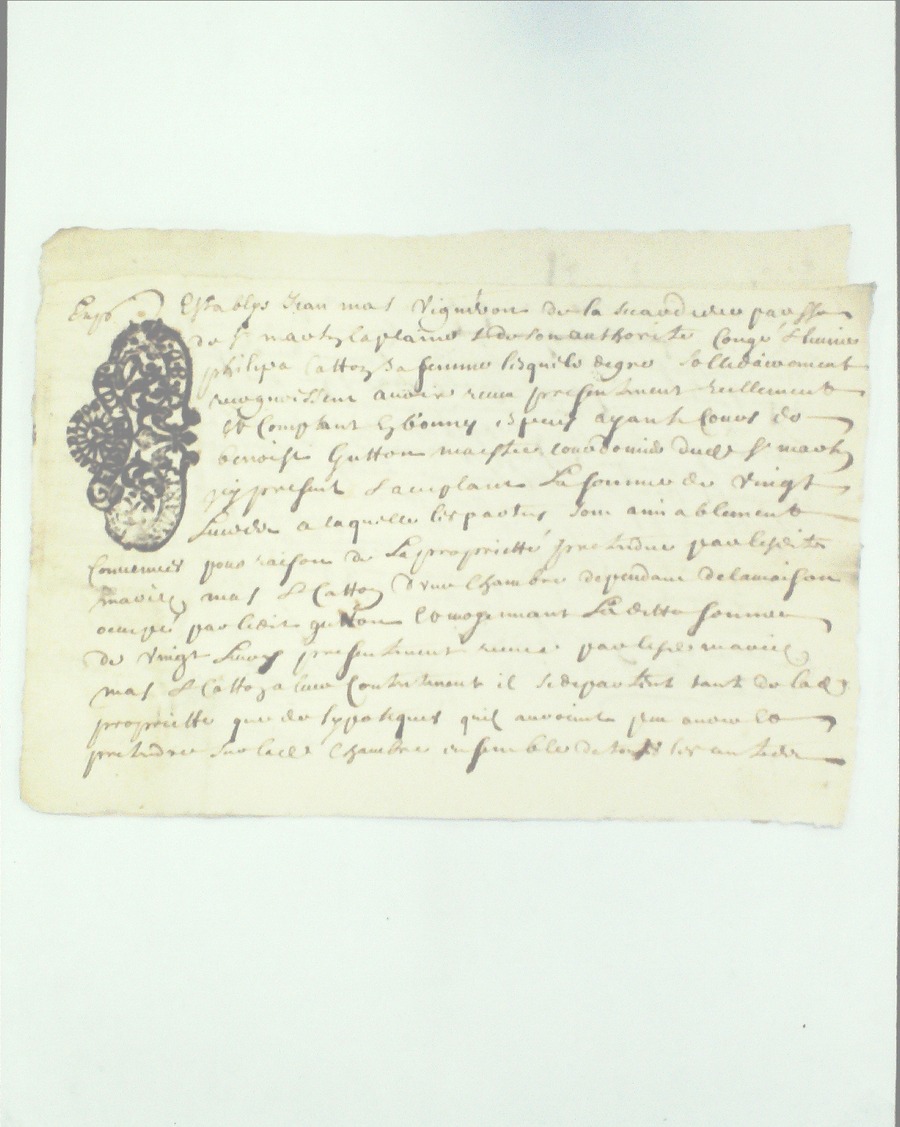 Establys Jean mas Vigneron de la paroisse
de St martin laplaine & de son authorité Congé &
philipa Cattoz sa femme lesquels de gre
recognoissent avoir receu presentement reellement
et Comptant en bonnes especes ayant Cours de
benoist Gutton maistre courdonnier dudt St martin
icy present & aceptant La somme de Vingt
Livres a laquelle les parties sont amiablement
Convenues pour raison de La proprietté pretendue par lesdits
mariez mas & Cattoz d'une Chambre dependant de la maison
ocupé par ledit gutton & moyennant La ditte somme
de vingt Livres presentement receue par lesd mariez
mas & Cattoz a leur Contentement il se departent tant de lad
proprietté que des hypoteques quil avoient peu avoir &
pretendre sur lade Chambre ensemble de tous les autres